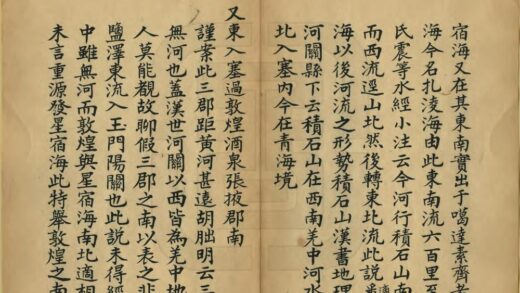 宿海又在其東南實出于噶達素齊老
海今名扎淩海由此東南流六百里至
氏震等水經小注云今河行積石山南
而西流逕山北然後轉東北流此說
海以後河流之形勢積石山漢書地理
河關縣下云積石山在西南羌中河水
北入塞內今在青海境
又東入塞過敦煌酒泉張掖郡南
謹案此三郡距黃河甚遠胡朏明云三
無河也蓋漢世河關以西皆為羌中地
人莫能覩故聊假三郡之南以表之非
鹽澤東流入玉門陽關也此說未得經
中雖無河而敦煌與星宿海南北適相
未言重源發星宿海此特舉敦煌之南